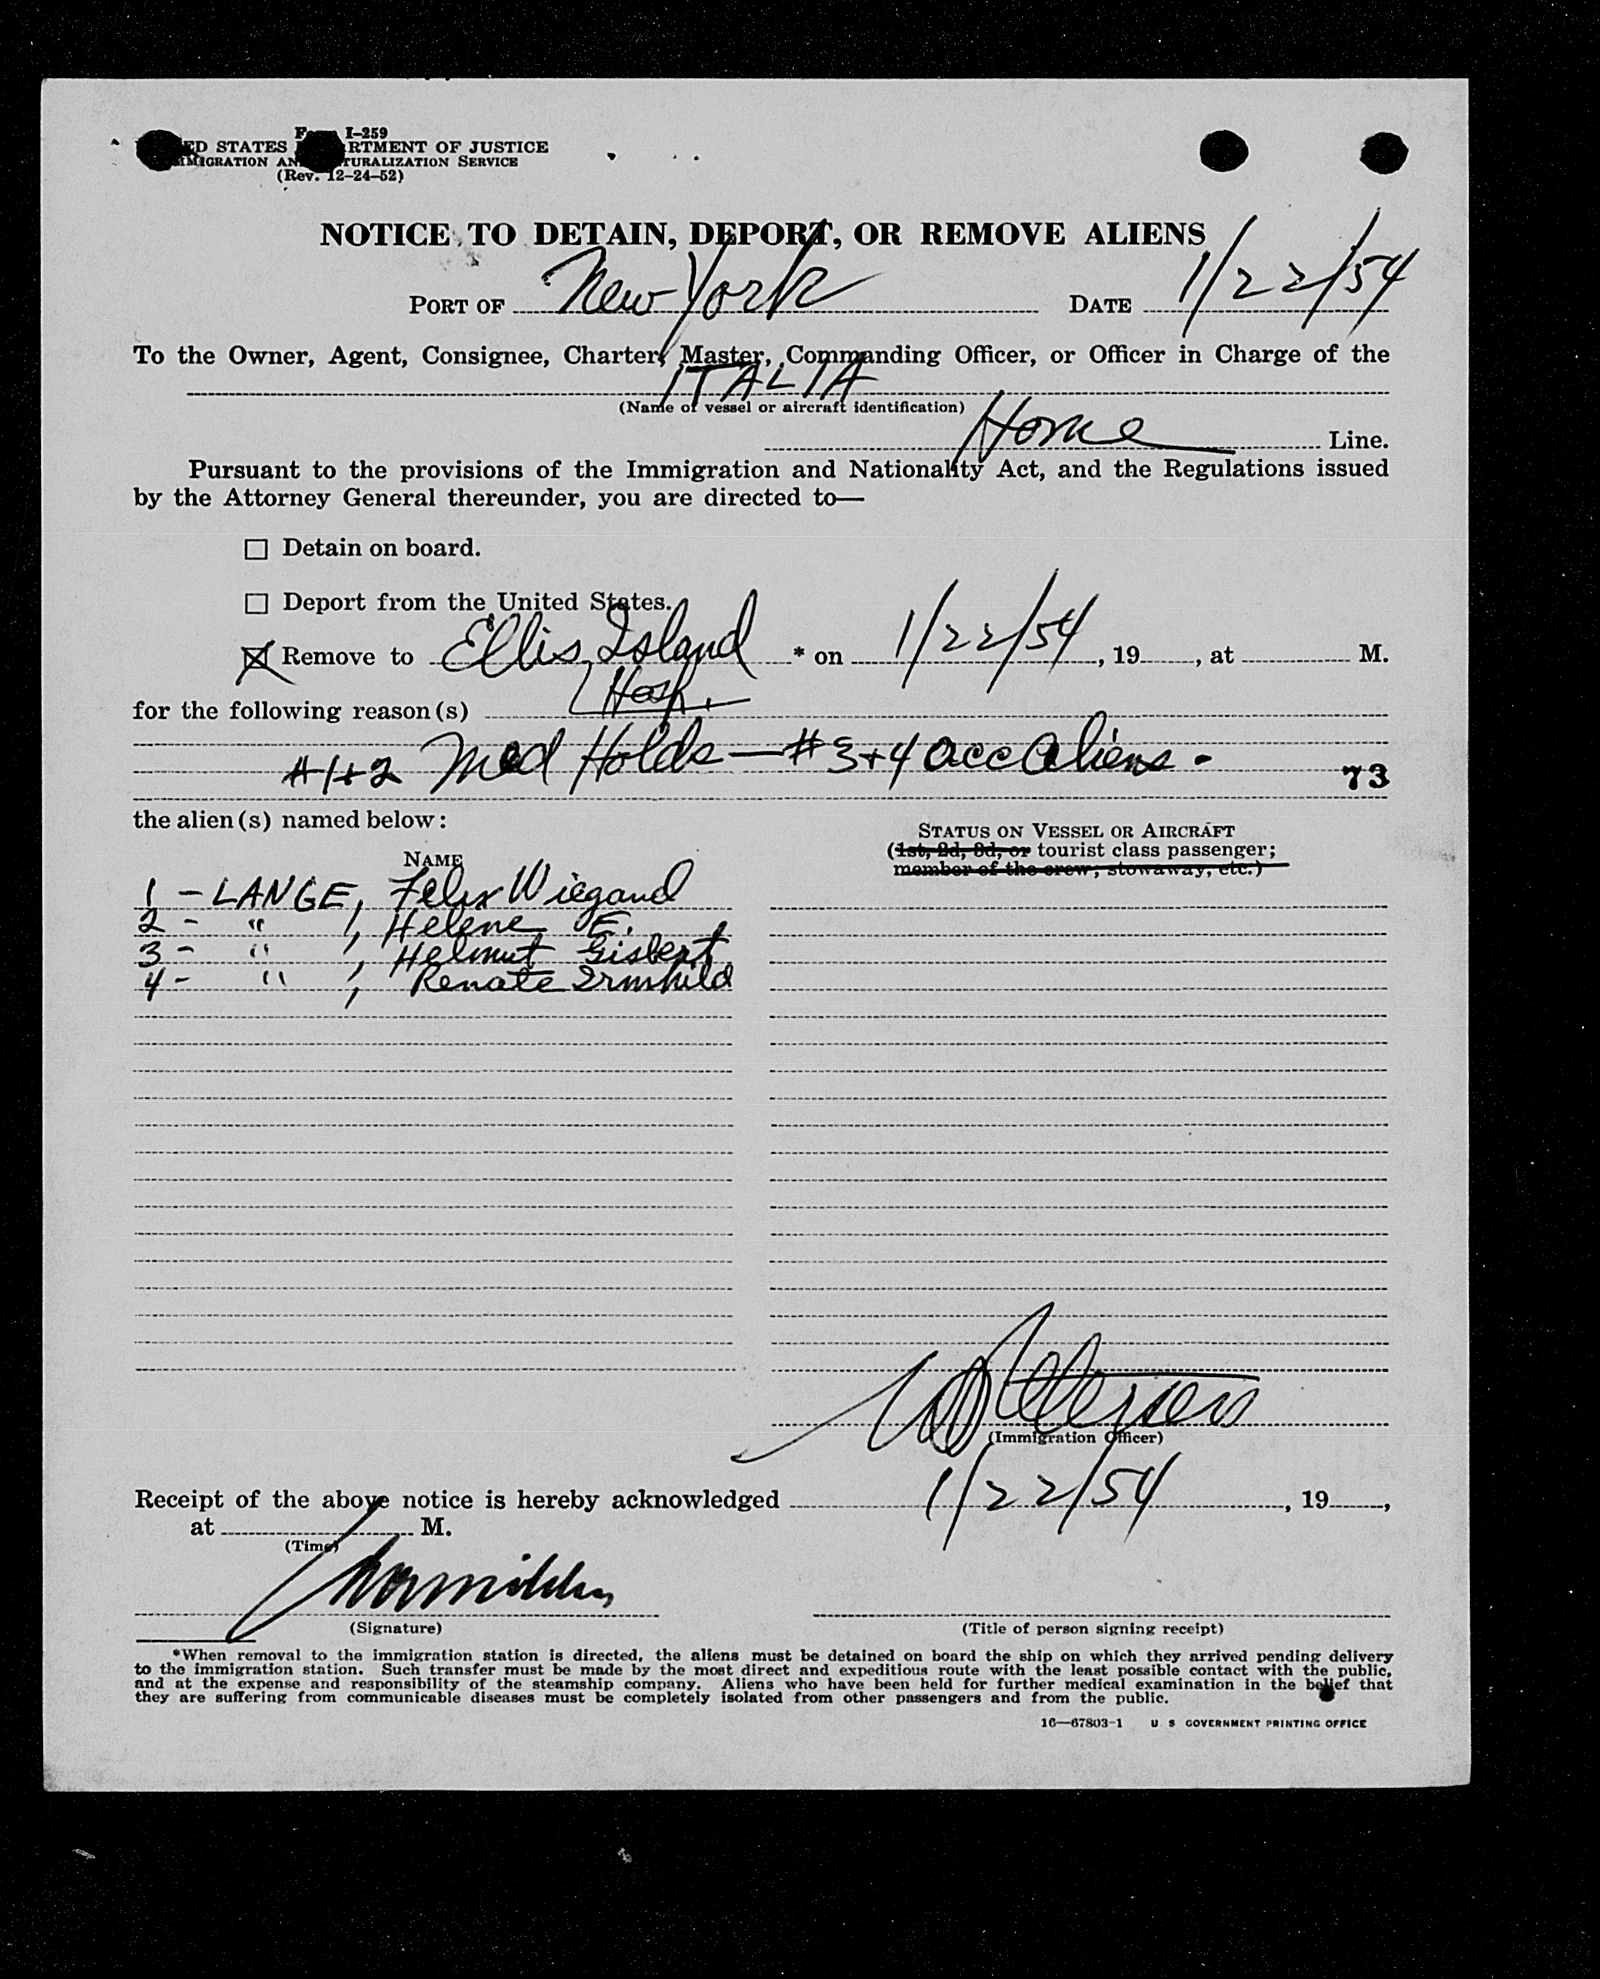 Form I-259
UNITED STATES DEPARTMENT OF JUSTICE
IMMIGRATION AND NATURALIZATION SERVICE
(Rev. 12-24-52)
NOTICE TO DETAIN, DEPORT, OR REMOVE ALIENS
PORT OF New York DATE 1/22/54
To the Owner, Agent, Consignee, Charter, Master, Commanding Officer, or Officer in Charge of the
ITALIA
(Name of vessel or aircraft identification)
Home Line.
Pursuant to the provisions of the Immigration and Nationality Act, and the Regulations issued
by the Attorney General thereunder, you are directed to—
☐ Detain on board.
☐ Deport from the United States.
☒ Remove to Ellis Island * on 1/22/54, 19, at M.
Hosp.
for the following reason(s)
#1+2 Med Holds — #3+4 Acc Aliens.
73
the alien(s) named below:
STATUS ON VESSEL OR AIRCRAFT
(1st, 2d, 3d, or tourist class passenger;
member of the crew, stowaway, etc.)
NAME
1 - LANGE, Felix Wiegand
2 - " , Helene E.
3 - " , Helmut Gisbert
4 - " , Renate Irmhild
(Immigration Officer)
Receipt of the above notice is hereby acknowledged 1/22/54, 19,
at M.
(Time)
(Signature)
(Title of person signing receipt)
*When removal to the immigration station is directed, the aliens must be detained on board the ship on which they arrived pending delivery
to the immigration station. Such transfer must be made by the most direct and expeditious route with the least possible contact with the public,
and at the expense and responsibility of the steamship company. Aliens who have been held for further medical examination in the belief that
they are suffering from communicable diseases must be completely isolated from other passengers and from the public.
16—67803-1 U S GOVERNMENT PRINTING OFFICE